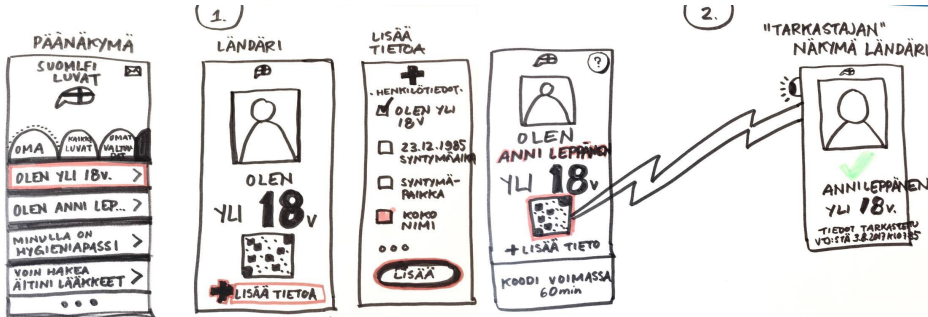 1.
2.
PÄÄNÄKYMÄ
SUOMI.FI
LUVAT
OMA
KAIKKI
LUVAT
OMAT
VALTUU-
DET
OLEN YLI 18V. >
OLEN ANNI LEP... >
MINULLA ON
HYGIENIAPASSI >
VOIN HAKEA
ÄITINI LÄÄKKEET >
LÄNDÄRI
OLEN
YLI 18V
+ LISÄÄ TIETOA
LISÄÄ
TIETOA
HENKILÖTIEDOT
OLEN YLI
18V
23.12.1985
SYNTYMÄAIKA
SYNTYMÄ-
PAIKKA
KOKO
NIMI
LISÄÄ
?
OLEN
ANNI LEPPÄNEN
YLI 18V
+ LISÄÄ TIETO
KOODI VOIMASSA
60min
"TARKASTAJAN"
NÄKYMÄ LÄNDÄRI
ANNI LEPPÄNEN
YLI 18V.
TIEDOT TARKASTETTU